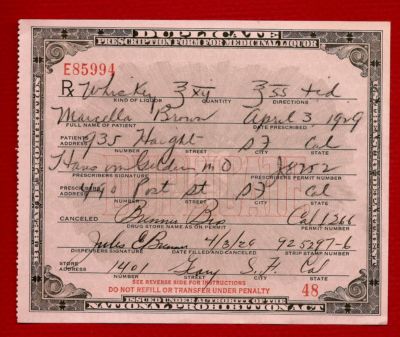 DUPLICATE
PRESCRIPTION FORM FOR MEDICINAL LIQUOR
E85994
Rx Whiskey ℥xvj ℥ss tid
KIND OF LIQUOR QUANTITY DIRECTIONS
Marcella Brown April 3 1929
FULL NAME OF PATIENT DATE PRESCRIBED
PATIENT'S ADDRESS 935 Haight SF Cal
NUMBER STREET CITY STATE
Hans M.D.
PRESCRIBER'S SIGNATURE PRESCRIBER'S PERMIT NUMBER
PRESCRIBER'S ADDRESS 990 Post St SF Cal
NUMBER STREET CITY STATE
CANCELED Bros Cal 1266
DRUG STORE NAME AS ON PERMIT PERMIT NUMBER
Jules 925297-6
DISPENSER'S SIGNATURE DATE FILLED STRIP STAMP NUMBER
STORE ADDRESS 1401 Geary S.F. Cal
NUMBER STREET CITY STATE
SEE REVERSE SIDE FOR INSTRUCTIONS
DO NOT REFILL OR TRANSFER UNDER PENALTY 48
ISSUED UNDER AUTHORITY OF THE
NATIONAL PROHIBITION ACT